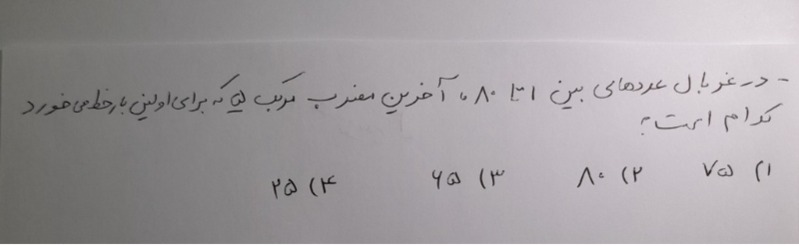 - در غربال عددهای بین ۱ تا ۸۰، آخرین مضرب مرکب ۵ که برای اولین بار خط می‌خورد
کدام است؟
۱) ۷۵ ۲) ۸۰ ۳) ۶۵ ۴) ۲۵